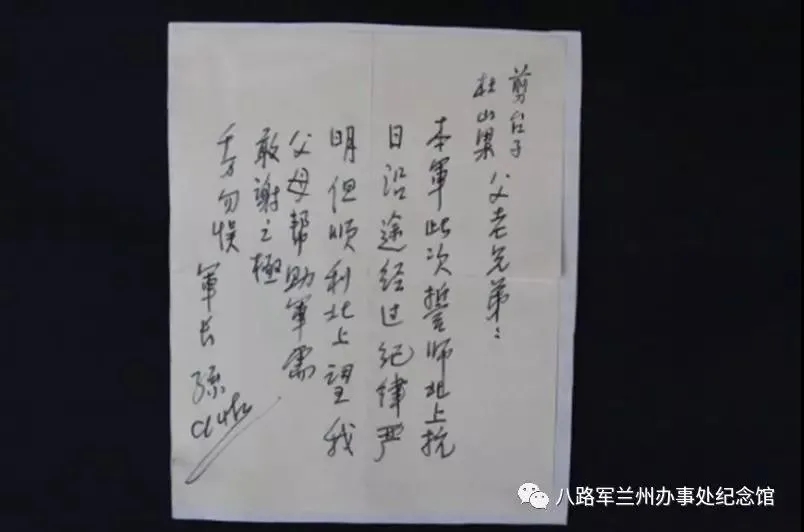 剪台子
杜山梁 父老兄弟：
本軍此次誓师北上抗
日沿途经过纪律严
明但顺利北上望我
父母帮助军需
敢谢之極
千万勿悮
軍长 孫
八路军兰州办事处纪念馆